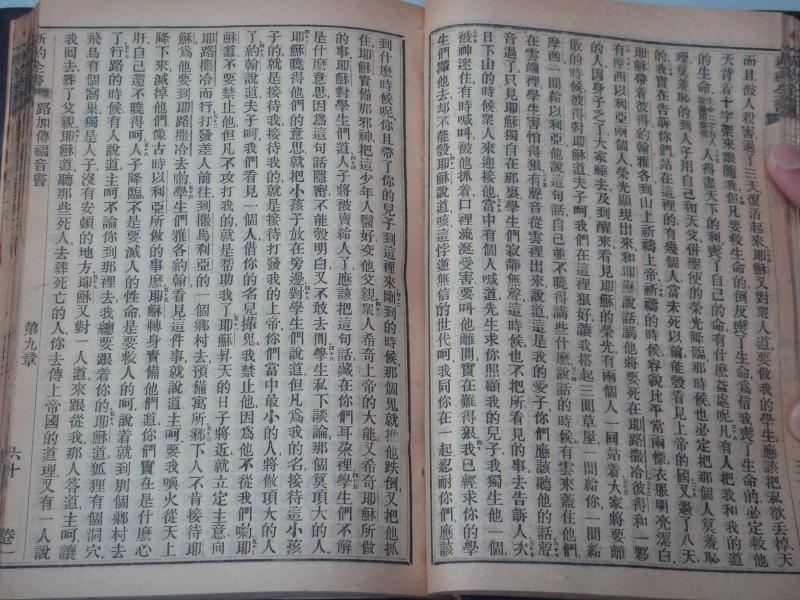 而且被人殺害過了三天復活起來耶穌又對眾人道要做我的學生應該把私欲丟掉天
天背着十字架來跟隨我但凡要救生命的倒反喪了生命爲信我喪了生命的必定救他
的生命人得盡天下的利喪了自己的命有什麼益處呢凡有人把我和我的道
理算羞恥的到人子用自己和天父併聖使的榮光降臨那時候也必定把那個人算羞恥
的我實在告訴你們站在這裡的有幾個人當未死以前能彀看見上帝的國又過了八天
耶穌帶着彼得約翰雅各到山上祈禱上帝祈禱的時候容貌比平常兩樣衣服明亮潔白
有摩西以利亞兩個人榮光顯現出來和耶穌說話講他將要死在耶路撒冷彼得和一夥
的人因身子乏了大家睡去及到醒來看見耶穌的榮光有兩個人一同站着大家將要離
散的時候彼得對耶穌道夫子呵我們在這裡狠好讓我搭起三間草屋一間給你一間給
摩西一間給以利亞他說這句話自己並不曉得講些什麼說話的時候有雲來蓋住他們
在雲端裡學生害怕得狠有聲音從雲裡出來說道這是我的愛子你們應該聽他的話聲
音過了只見耶穌獨自在那裏學生們寂靜無聲這時候也不把所看見的事去告訴人次
日下山的時候眾人來迎接他當中有個人喊道先生求你照顧我的兒子我獨生他一個
被神迷住有時喊叫被他抓着口裡流涎受害要叫他離開實在難得狠我已經求你的學
生們攆他去却不能彀耶穌說道咳這悖逆無信的世代呵我同你在一起忍耐你們應該
到什麼時候呢你且帶了你的兒子到這裡來剛到的時候那個鬼就推他跌倒又把他抓
住耶穌責備那邪神把這少年人醫好交他父親眾人希奇上帝的大能又希奇耶穌所做
的事耶穌對學生們道人子將被賣給人了應該把這句話藏在你們耳朶裡學生們不解
是什麼意思因爲這句話隱密不能彀明白又不敢去問學生私下談論那個算頂大的人
耶穌曉得他們的意思就把小孩子放在旁邊對學生們說道但凡爲我的名接待這小孩
子的就是接待我接待我的就是接待打發我的上帝你們當中最小的人將做頂大的人
了約翰說道夫子呵我們看見一個人借你的名兒攆鬼我禁止他因爲他不從我們喲耶
穌道不要禁止他但凡不攻打我的就是幫助我了耶穌昇天的日子將近就立定主意向
耶路撒冷而行打發差人前往到撒馬利亞的一個鄉村去預備寓所稱下人不肯接待耶
穌爲他要到耶路撒冷去喲學生們雅各約翰看見這件事就說道主呵要我喚火從天上
降下來滅掉他們像古時以利亞所做的事麼耶穌轉身責備他們道你們實在是什麼心
肝自己還不曉得呵人子降臨不是要滅人的性命是要救人的呵說着就到別個鄉村去
了行路的時候有人說道主呵不論你到那裡去我總要跟着你的耶穌道狐狸有個洞穴
飛鳥有個窩巢獨是人子沒有安頓的地方耶穌又對一人道來跟從我那人答道主呵讓
我囘去葬了父親耶穌道聽那些死人去葬死亡的人你去傳上帝國的道理又有一人說
新約全書 路加傳福音書 第九章 六十 卷一